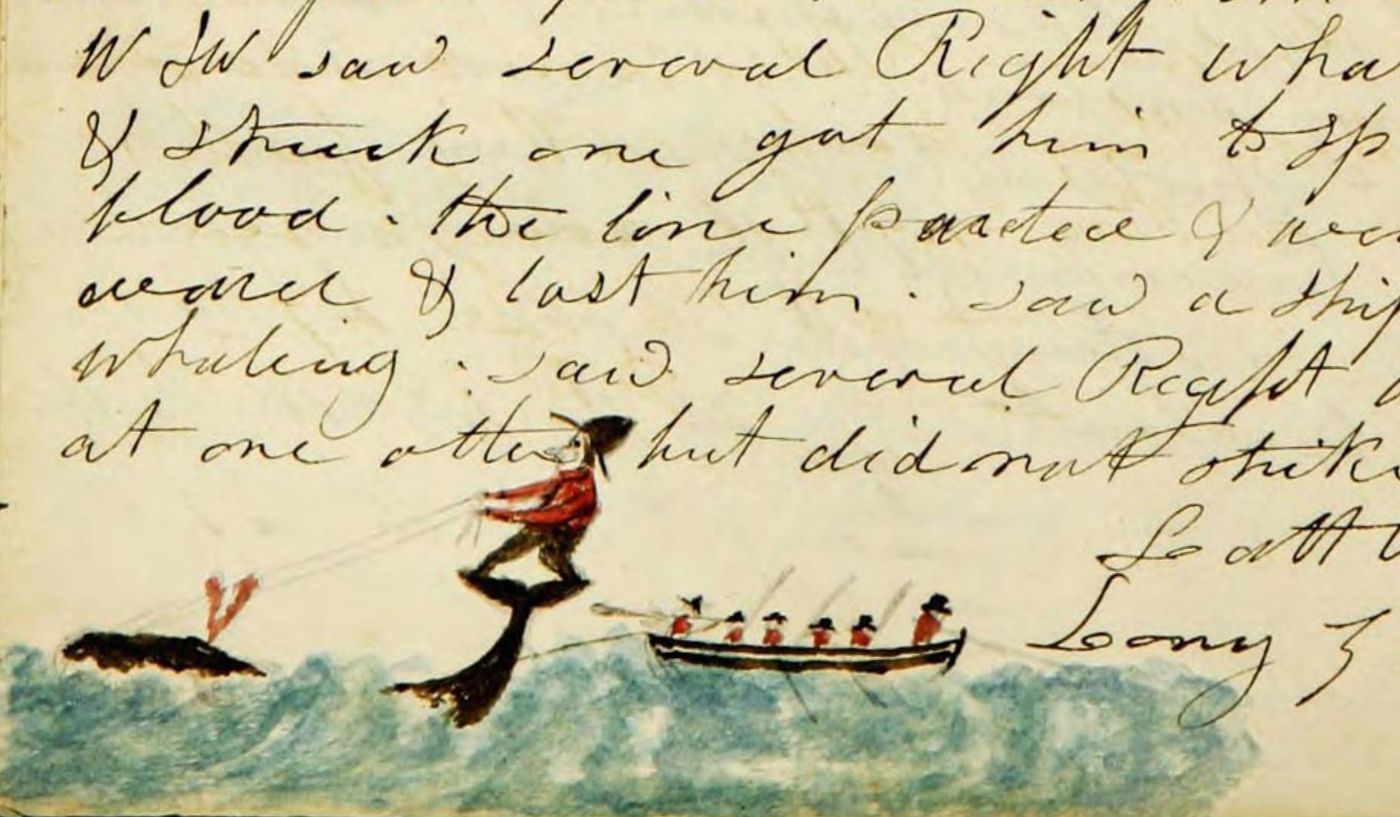 W SW saw several Right wha
& struck one got him to sp
blood . the line parted &
& lost him . saw a ship
whaling . saw several Right
at one other but did not strike
Latt
Long 3